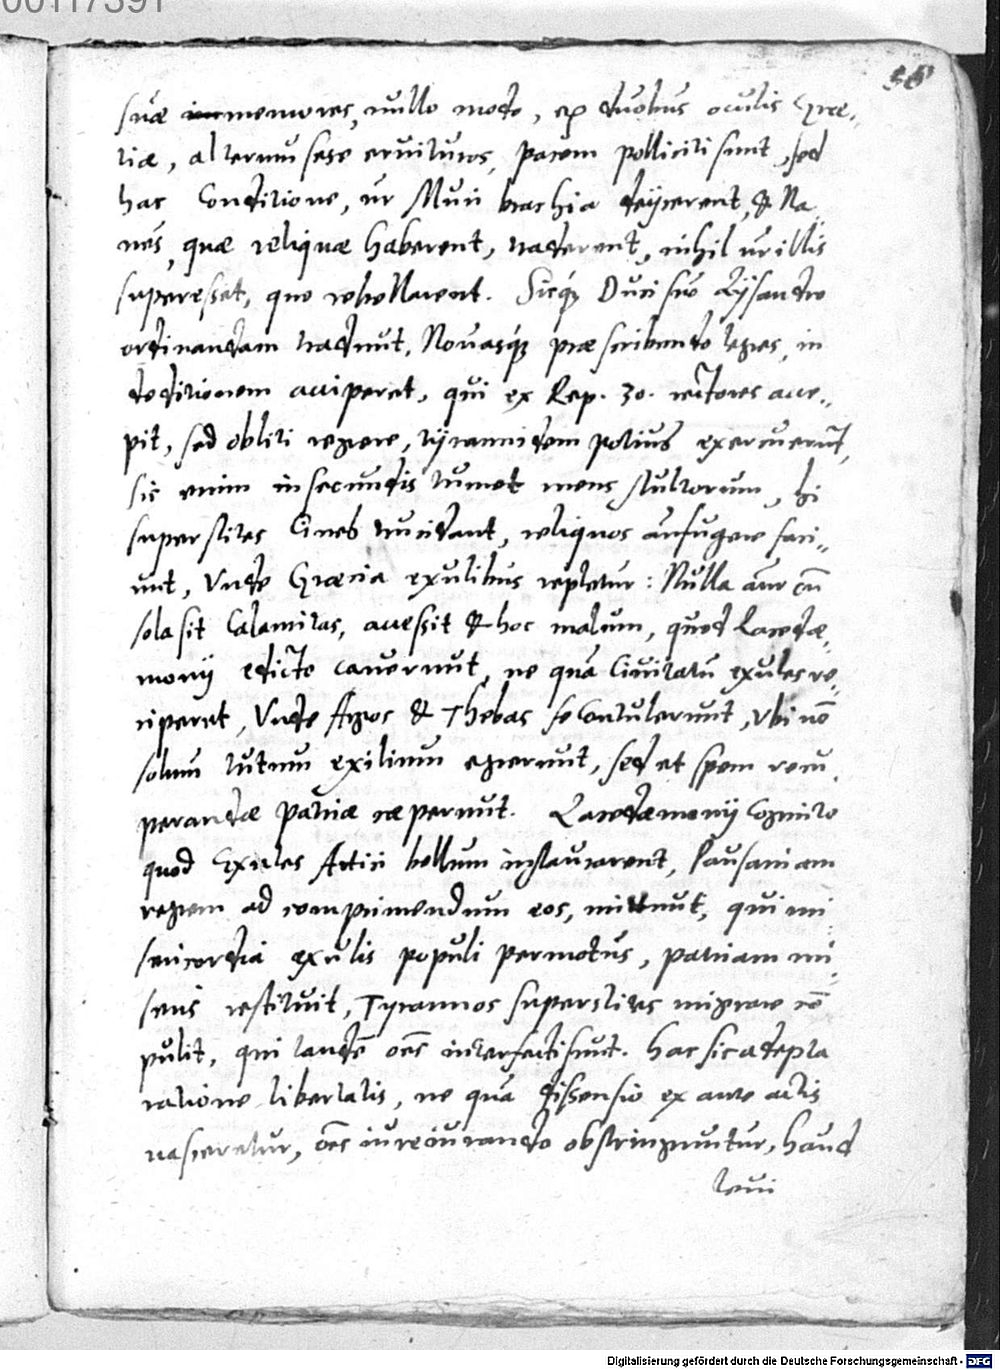 00117391
56
suæ immemores, nullo modo, ex duobus oculis Græ„
tiæ, alterum sese eruituros, pacem polliciti sunt, sed
hac Conditione, ut Muri brachia deijcerent, & Na„
ves, quæ reliquæ haberent, traderent, nihil ut illis
superesset, quo rebellarent. Sicq; Duci suo Lÿsandro
ordinandam tradunt, Novasq; præscribendo leges, in
deditionem acciperet, qui ex Rep. 30. rectores acce„
pit, sed obliti regere, tÿrannidem potius exercuerūt,
sic enim in secundis tumet mens stultorum, hi
superstites Cives trucidant, reliquos aufugere faci„
unt, Unde Græcia exulibus repletur: Nulla aūt cū
sola sit Calamitas, accessit & hoc malum, quod Lacedæ„
monij edicto caverunt, ne quā Civitatū exules re„
ciperet, Unde Argos & Thebas se Contulerunt, Ubi nō
solum tutum exilium egerunt, sed et spem recu„
perandæ patriæ cæperunt. Lacedæmonij Cognito
quod Exules Attici bellum instaurarent, Pausaniam
regem ad comprimendum eos, mittunt, qui mi„
sericordia exulis populi permotus, patriam mi„
seris restituit, Tyrannos superstites migrare cō
pulit, qui tandē oēs interfecti sunt. Hac sic adepta
ratione libertatis, ne quā dissensio ex ante actis
nasceretur, oēs iureiurando obstringuntur, haud
levi
Digitalisierung gefördert durch die Deutsche Forschungsgemeinschaft - DFG